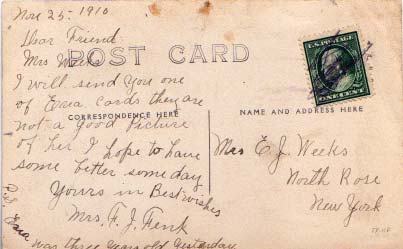 Nov 25 - 1910
Dear Friend
Mrs Weeks
POST CARD
I will send you one
of Erea cards they are
CORRESPONDENCE HERE
not a good Picture
of her I hope to have
some better some day
Yours in Best wishes
Mrs. F. J. Fenk
was three years old yesterday
U.S. POSTAGE
ONE CENT
NAME AND ADDRESS HERE
Mrs E. J. Weeks
North Rose
New York